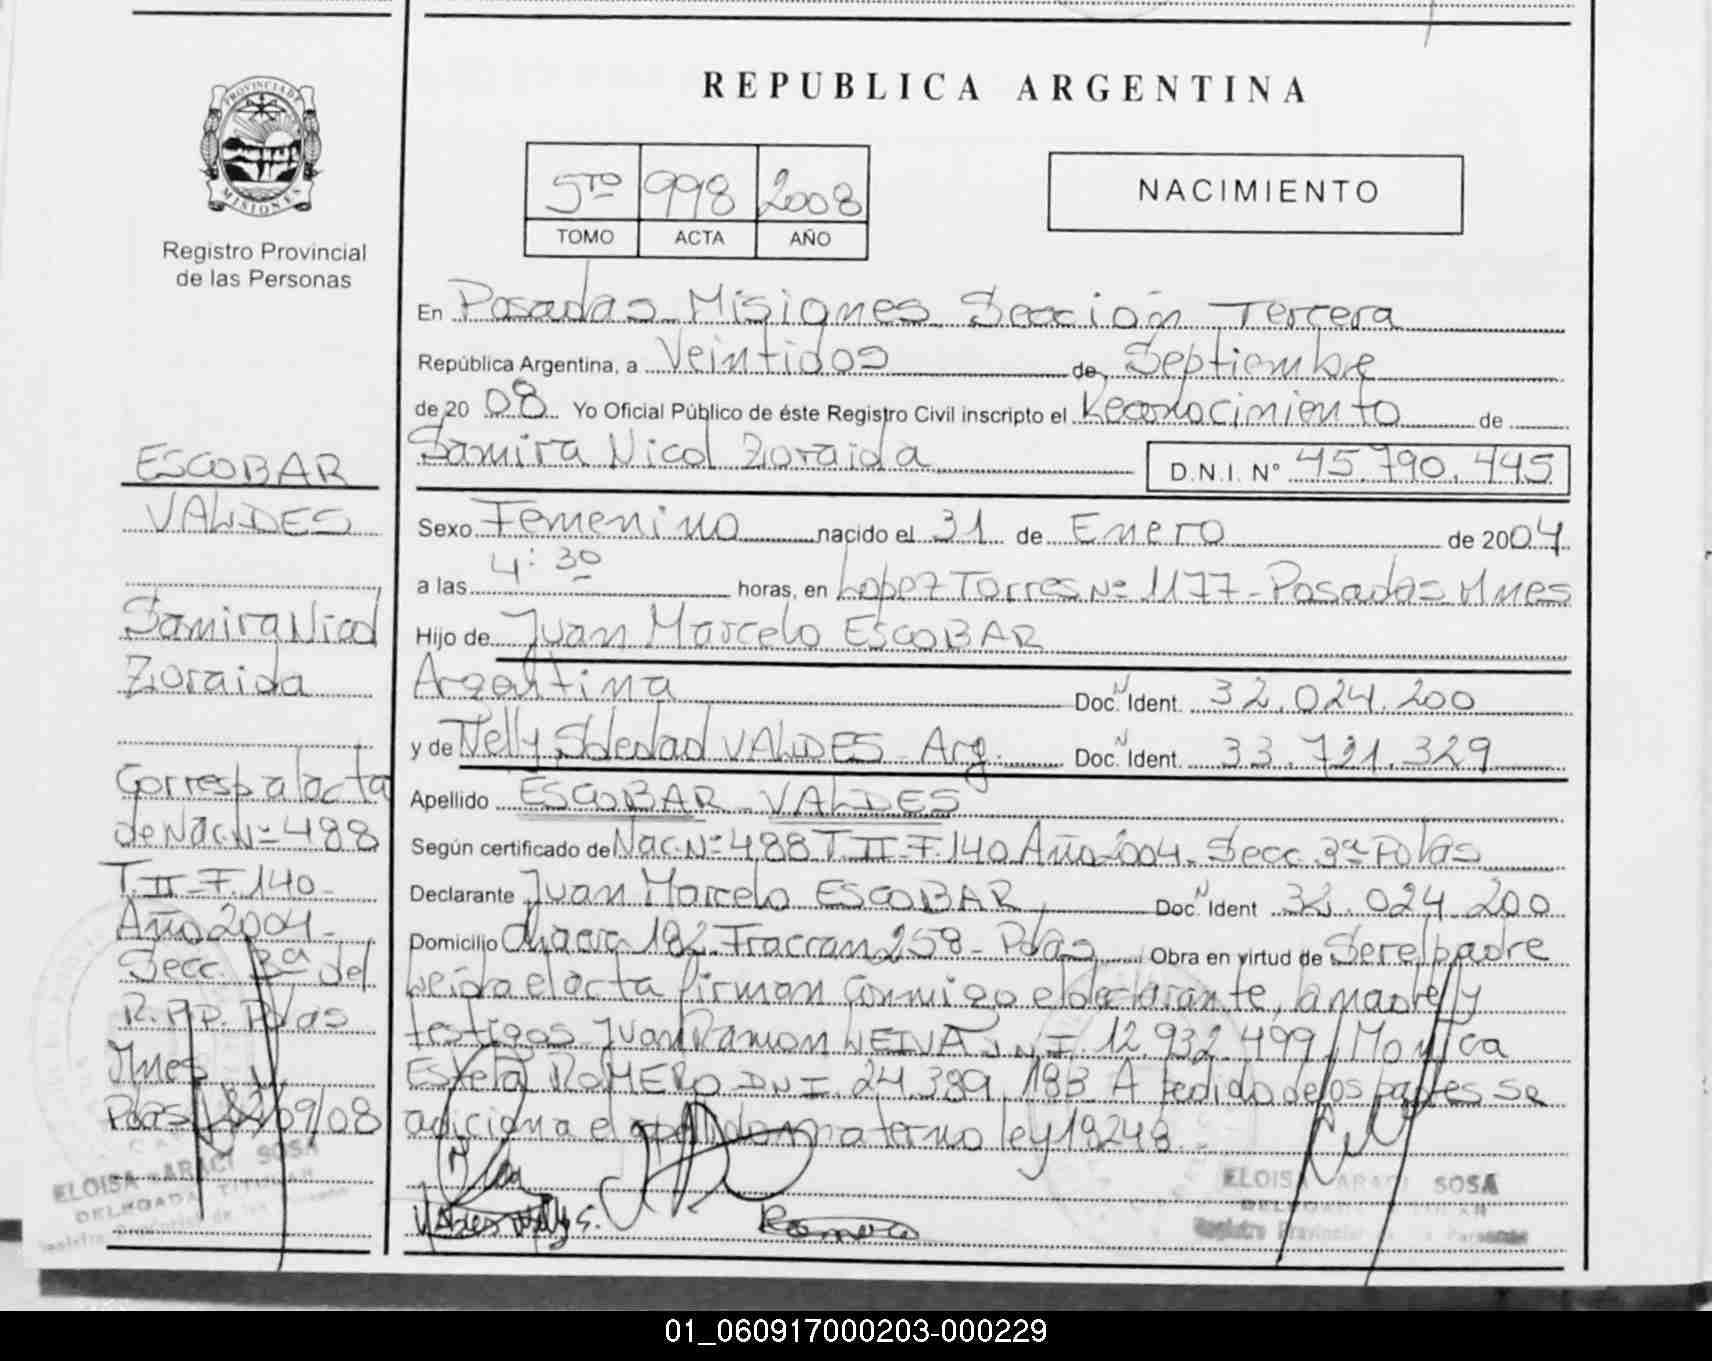 REPUBLICA ARGENTINA
PROVINCIA DE
MISIONES
Registro Provincial
de las Personas
5TO 998 2008
TOMO ACTA AÑO
NACIMIENTO
En Posadas Misiones Sección Tercera
República Argentina, a Veintidos de Septiembre
de 20 08 Yo Oficial Público de éste Registro Civil inscripto el Reconocimiento de
Samira Nicol Zoraida D.N.I. N° 45.790.445
Sexo Femenino nacido el 31 de Enero de 2004
a las 4:30 horas, en Lopez Torres Nº 1177 - Posadas Mnes
Hijo de Juan Marcelo ESCOBAR
Argentina Doc. Ident. 32.024.200
y de Nelly Soledad VALDES - Arg. Doc. Ident. 33.721.329
Apellido ESCOBAR - VALDES
Según certificado de Nac. Nº 488 T II - F. 140 Año 2004 - Secc. 3ª Pdas
Declarante Juan Marcelo ESCOBAR Doc. Ident 32.024.200
Domicilio Chacra 182 - Traccran 258 - Pdas Obra en virtud de Ser el padre
Leida el acta firman conmigo el declarante, la madre y
testigos Juan Ramon LEIVA D.N.I. 12.932.499 / Monica
Estela ROMERO DNI. 24.389.183 A pedido de los padres se
adiciona el apellido materno ley 18248.
Valdes Nelly S.
Romero
ELOISA ARACI SOSA
DELEGADA TITULAR
Registro Provincial de las Personas
ESCOBAR
VALDES
Samira Nicol
Zoraida
Corresp a lacta
de Nac. Nº 488
T. II - F. 140 -
Año 2004 -
Secc. 3ª del
R.P.P. Pdas
Mnes
Pdas 22/09/08
ELOISA ARACI SOSA
DELEGADA TITULAR
01_060917000203-000229